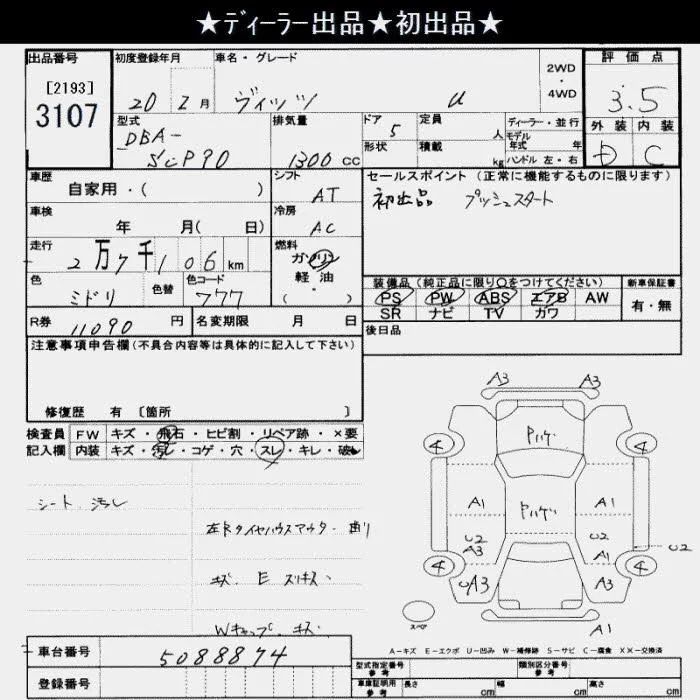 ★ディーラー出品★初出品★
出品番号 初度登録年月 車名・グレード 2WD・4WD 評価点
[2193]
3107
20 2月 ヴィッツ U 3.5
型式 排気量 ドア 定員 ディーラー・並行 外装 内装
DBA-
SCP90 1300 cc 5 人 モデル年式 年 D C
形状 積載 kg ハンドル 左・右
車歴 シフト セールスポイント (正常に機能するものに限ります)
自家用・( ) AT 初出品 プッシュスタート
車検 冷房
年 月( 日) AC
走行 燃料
2万7千106km ガソリン
色 色替 色コード 軽・油
ミドリ 777 ( )
装備品 (純正品に限り○をつけてください) 新車保証書
PS PW ABS エアB AW 有・無
SR ナビ TV カワ
R券 11090 円 名変期限 月 日 後日品
注意事項申告欄 (不具合内容等は具体的に記入して下さい)
修復歴 有 [箇所 ]
検査員 FW キズ・飛石・ヒビ割・リペア跡・×要
記入欄 内装 キズ・汚レ・コゲ・穴・スレ・キレ・破レ
シート 汚レ
キズ E スリキズ
Wキャップ キズ
A3 A3
4 Pハゲ 4
A1 Pハゲ A1
U2 U2 U2
A3 A1
4 4
UA3 A3
スペア A1
A-キズ E-エクボ U-凹み W-補修跡 S-サビ C-腐食 XX-交換済
車台番号 5088874
型式指定番号 参考 類別区分番号 参考
登録番号
車庫証明用 参考 長さ cm 幅 cm 高さ cm